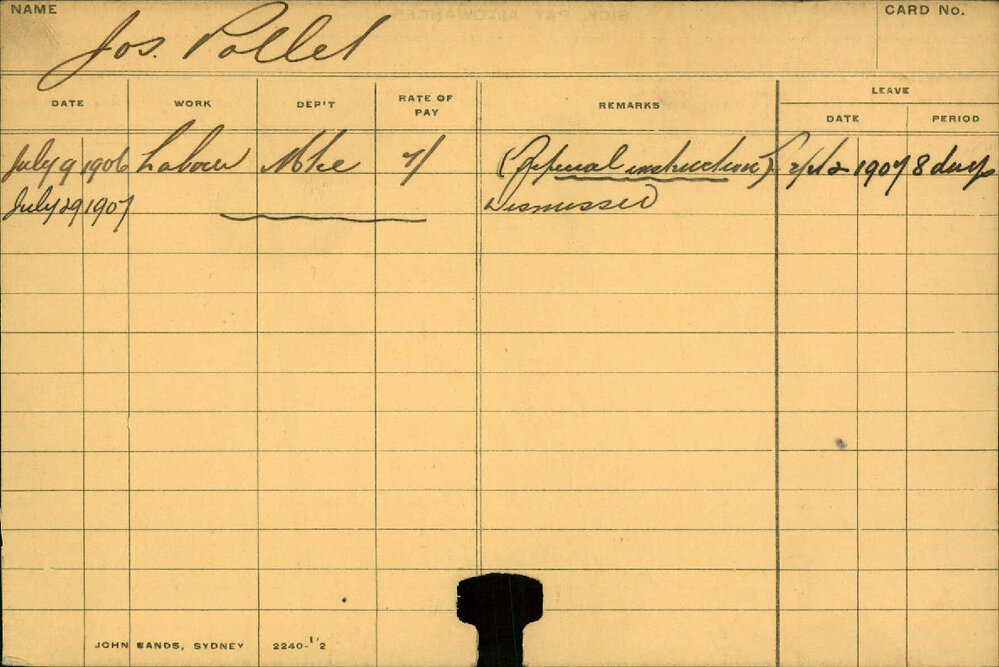 NAME Jos. Pollet CARD No.
DATE WORK DEP'T RATE OF PAY REMARKS LEAVE
DATE PERIOD
July 9 1906 Labour 7/ ( instruction) 1907 8 days
July 29 1907 Dismissed
JOHN SANDS, SYDNEY 2240-